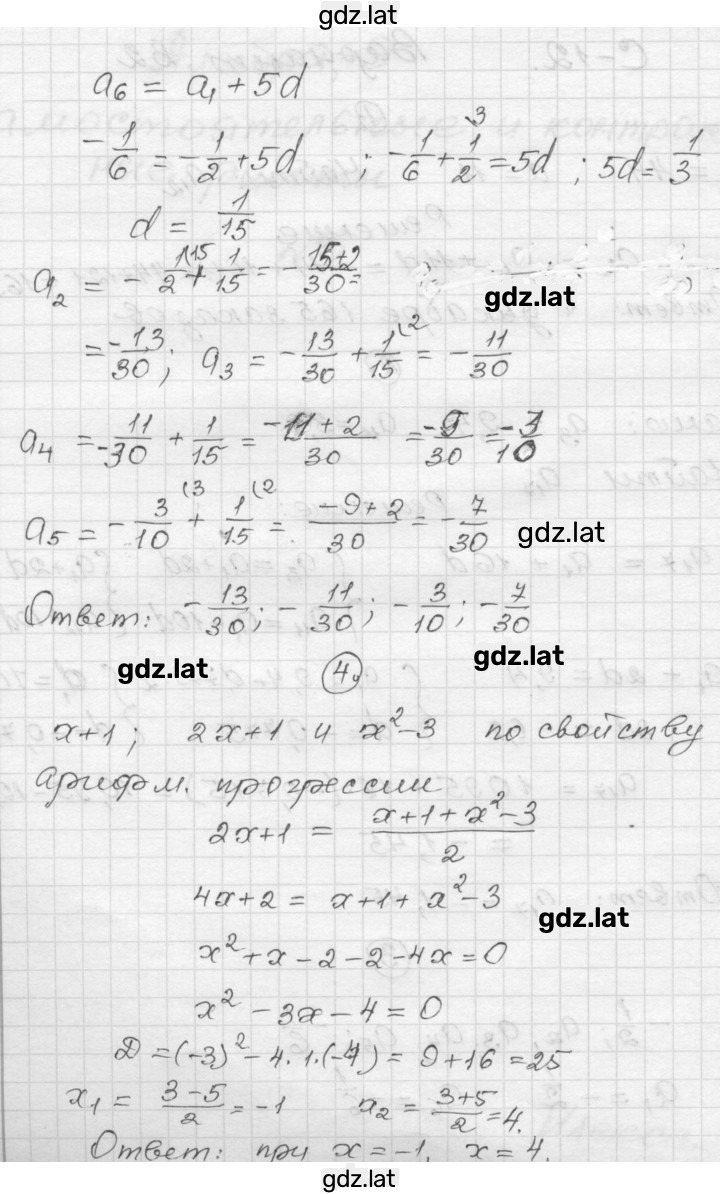 gdz.lat
a₆ = a₁ + 5d
-1/6 = -1/2 + 5d ; -1/6 + 1/2 ⁽³ = 5d ; 5d = 1/3
d = 1/15
a₂ = -1/2 ⁽¹⁵ + 1/15 = -15+2/30 =
gdz.lat
= -13/30 ; a₃ = -13/30 + 1/15 ⁽² = -11/30
a₄ = -11/30 + 1/15 = -11+2/30 = -9/30 = -3/10
a₅ = -3/10 ⁽³ + 1/15 ⁽² = -9+2/30 = -7/30
gdz.lat
Ответ: -13/30 ; -11/30 ; -3/10 ; -7/30
gdz.lat
gdz.lat
4.
x+1 ; 2x+1 и x²-3 по свойству
арифм. прогрессии
2x+1 = x+1+x²-3/2
4x+2 = x+1+x²-3
gdz.lat
x²+x-2-2-4x=0
x²-3x-4=0
D=(-3)²-4·1·(-4)=9+16=25
x₁ = 3-5/2 = -1 x₂ = 3+5/2 = 4.
Ответ: при x=-1, x=4.
gdz.lat